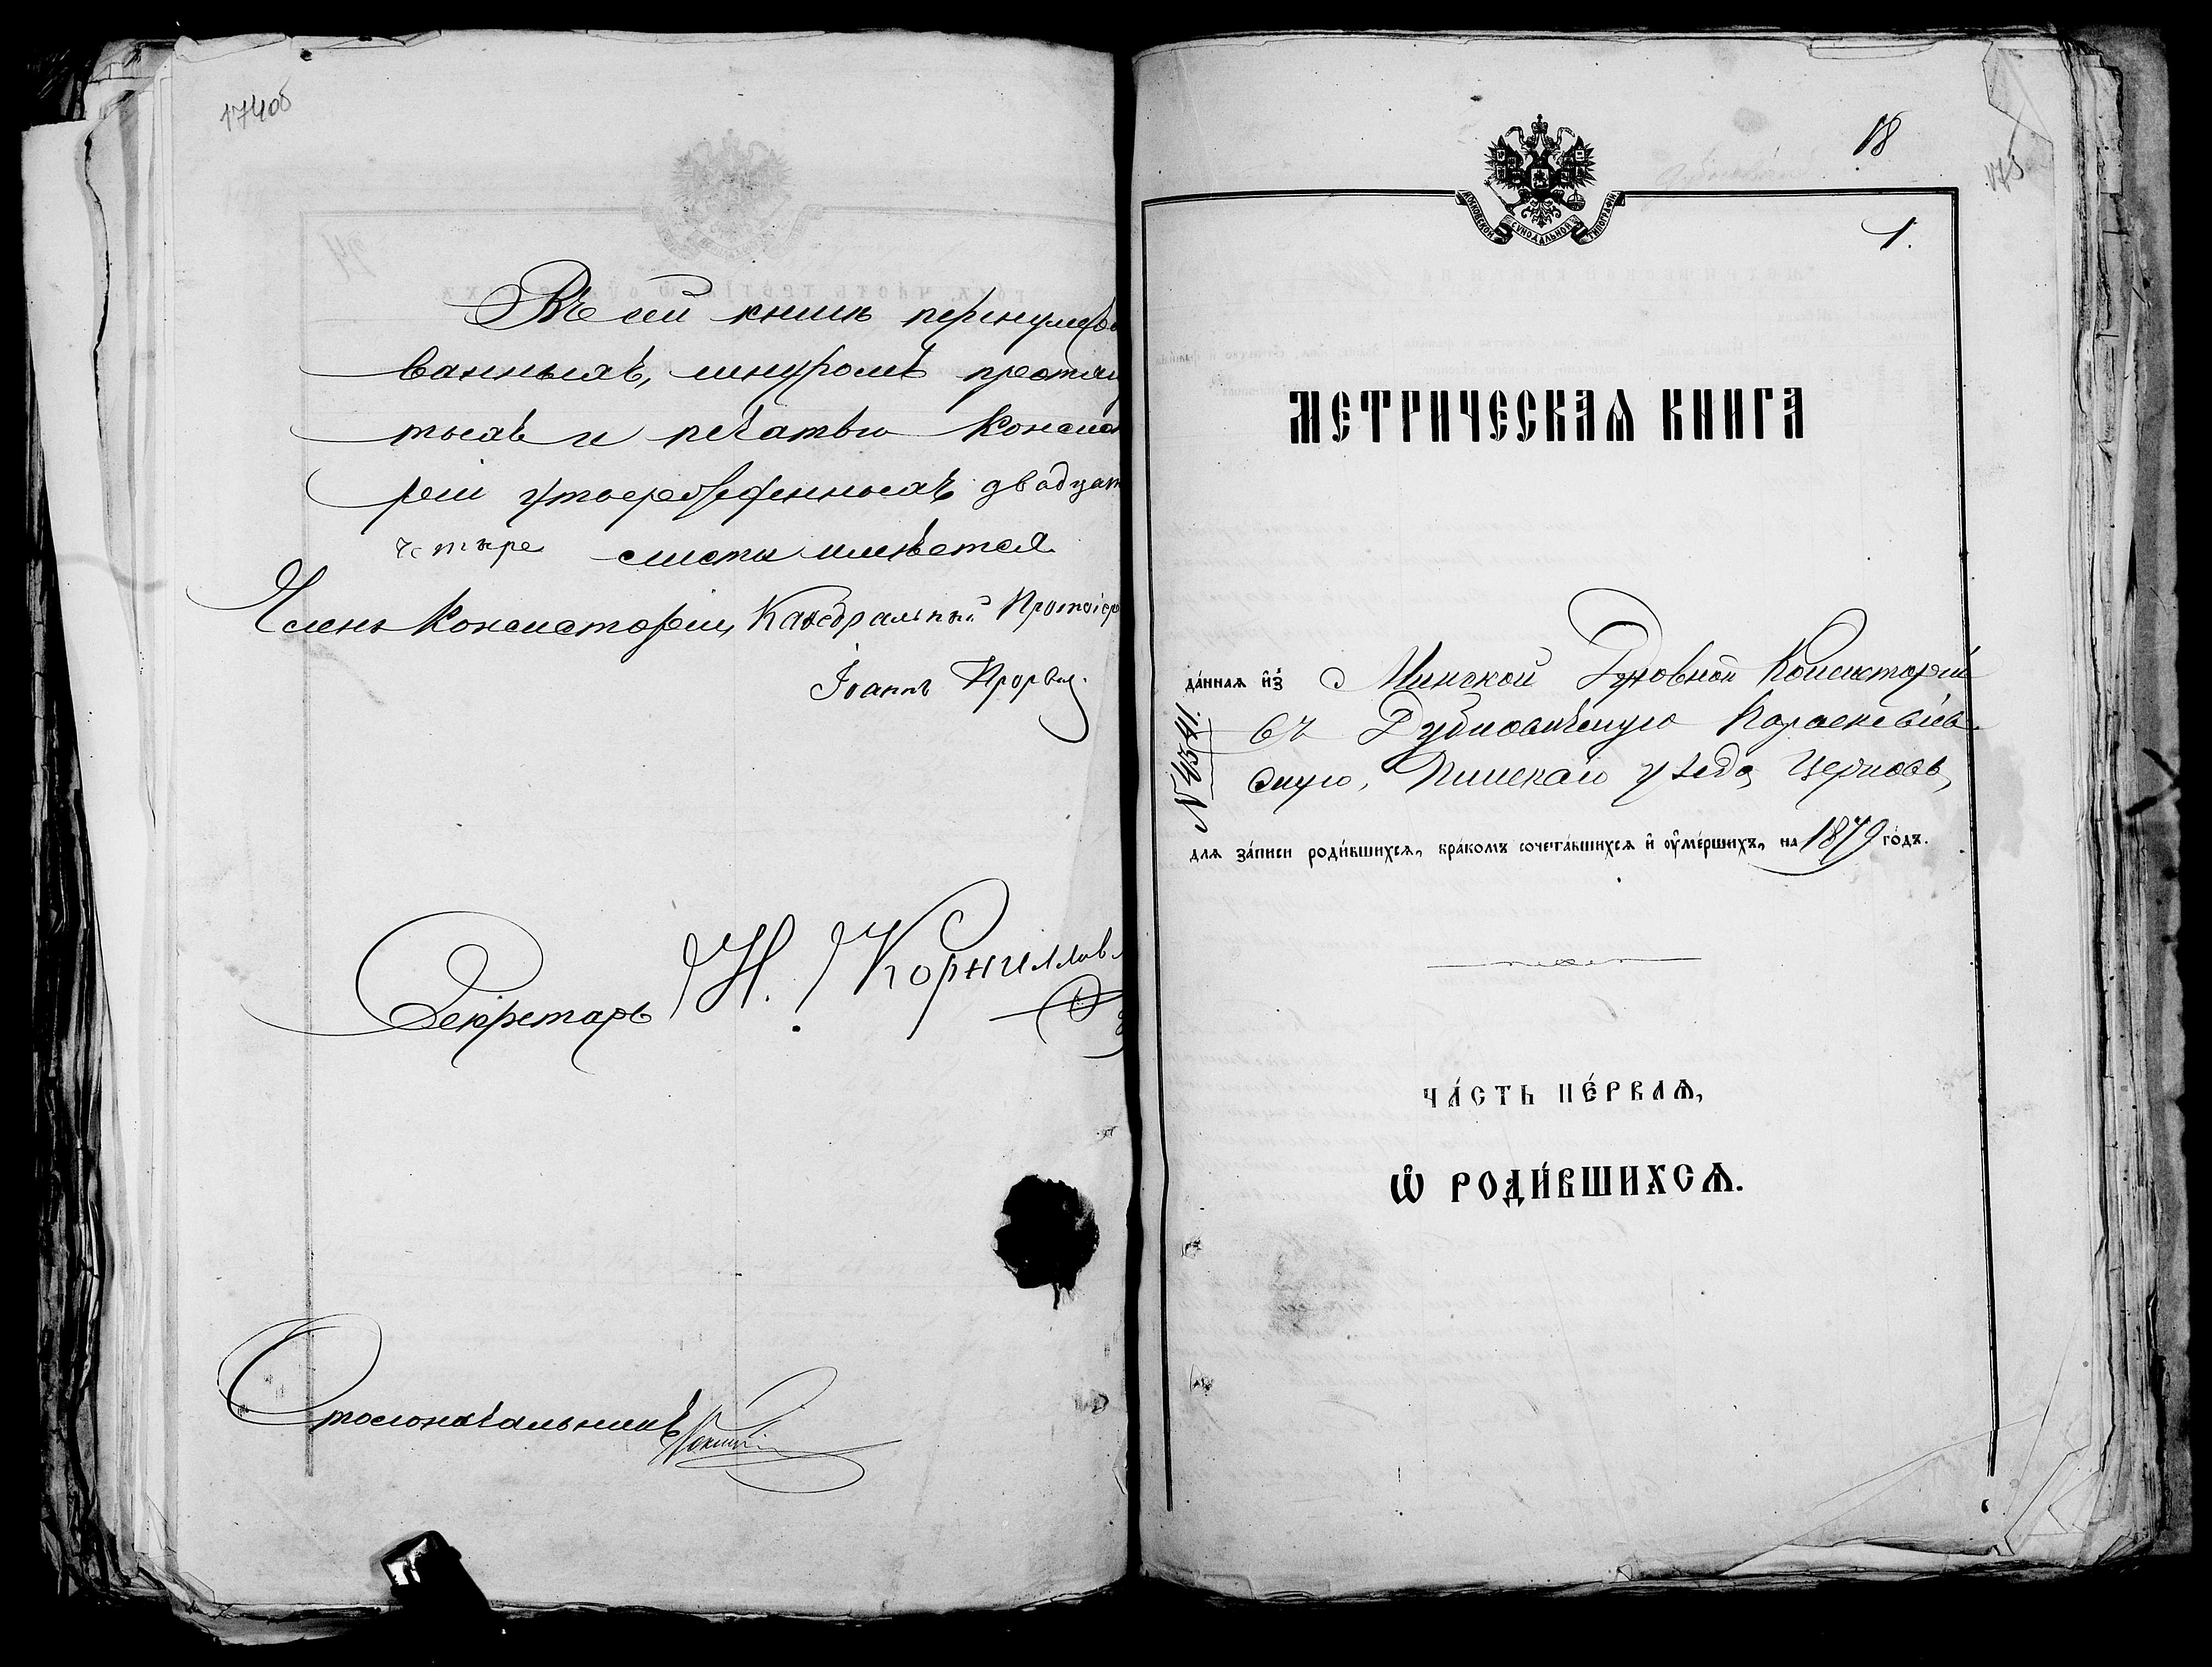 174об
Въ сей книгѣ перенумеро
ванныхъ, шнуромъ протяну
тыхъ и печатью Консисто
ріи утвержденныхъ двадцать
четыре листы имѣется
Членъ Консисторіи, Каѳедральный Протоіер
Іоаннъ
Секретарь Н. Корниллов
Столоначальникъ
18
175
МОСКОВСКОЙ СѴНОДАЛЬНОЙ ТИПОГРАФІИ
1.
МЕТРИЧЕСКАѦ КНИГА
да́ннаѧ и҆з̾ Минской Духовной Консисторіи
въ Дубновичскую Параскевіев
скую, Пинскаго уѣзда, Церковь,
№ 4541.
для за́писи роди́вшихсѧ, бра́комъ сочета́вшихсѧ и҆ оу҆ме́ршихъ, на 1879 го́дъ.
ЧА́СТЬ ПЕ́РВАѦ,
Ѡ҆ РОДИ́ВШИХСѦ.